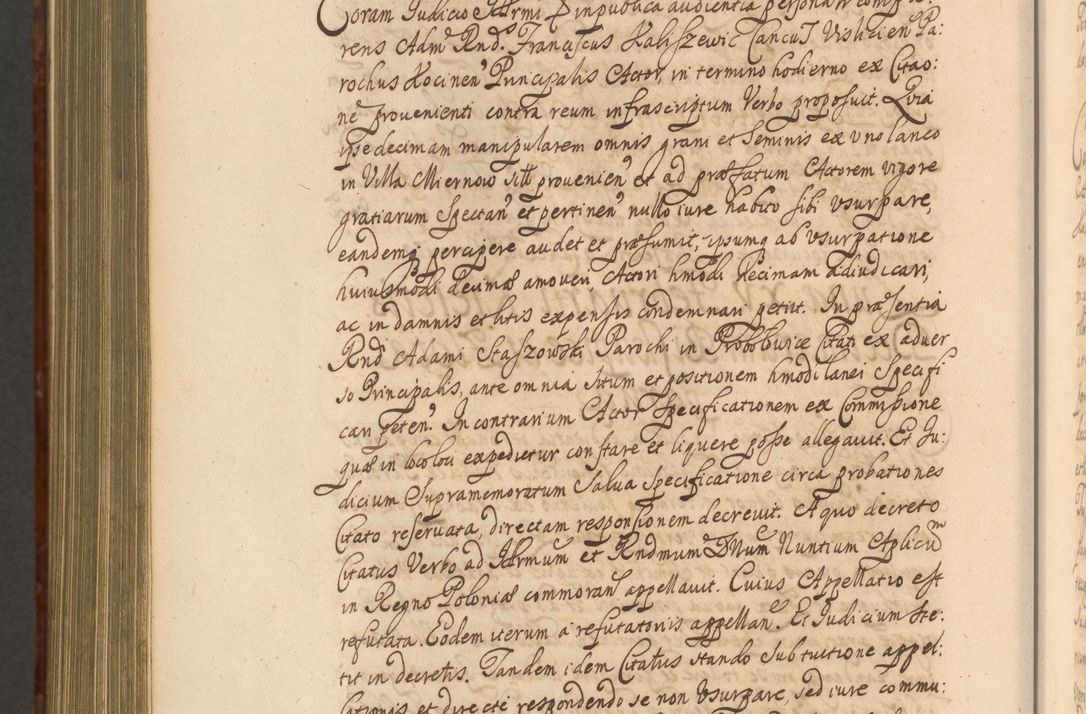 Coram Judicio Illrmi &c in publica audientia personalr compa:
rens Adm Rnds Franciscus Haliszewic Cancus Vislicien Pa:
rochus Kocinen Principalis Actor, in termino hodierno ex Citao:
ne prouenienti contra reum infrascriptum Verbo proposuit. Quia
ipse decimam manipularem omnis grani et seminis ex vno laneo
in Villa Miernow sitt prouenien et ad præfatum Actorem vigore
gratiarum spectan et pertinen nullo iure habito sibi vsurpare,
eandemq percipere audet et præsumit, ipsumq ab vsurpatione
huiusmodi decimæ amoueri, Actori hmodi decimam adiudicari,
ac in damnis et litis expensis condemnari petiit. In præsentia
Rnd Adami Staszowski Parochi in Probolowice Citati ex aduer
so Principalis, ante omnia situm et positionem hmodi lanei specifi
cari peten. In contrarium Actor specificationem ex Commissione
quæ in loco loci expedietur constare et liquere posse allegauit. Et Ju:
dicium supramemoratum salua specificatione circa probationes
Citato reseruata, directam responsionem decreuit. A quo decreto
Citatus Verbo ad Illrmum et Rndmum DNum Nuntium Aplicum
in Regno Poloniæ commoran appellauit. Cuius Appellatio est
refutata. Eodem iterum a refutatoriis appellan. Et Judicium ste:
tit in decretis. Tandem idem Citatus stando sub tuitione appel:
lationis et directe respondendo se non vsurpare, sed iure commu: